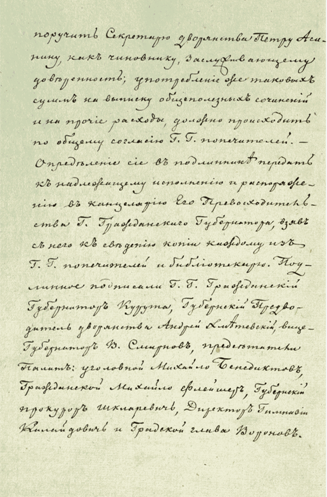 поручить Секретарю дворянства Петру Ага-
пину, какъ чиновнику, заслуживающему
довѣренность; употребленіе же таковыхъ
суммъ на выписку общеполезныхъ сочиненій
и на прочіе расходы, должно происходить
по общему согласію Г. Г. попечителей. —
Опредѣленіе сіе въ подлинникѣ передать
къ надлежащему исполненію и распоряже-
нію въ канцелярію Его Превосходитель-
ства Г. Гражданскаго Губернатора, взявъ
съ него къ свѣденію копіи каждому изъ
Г. Г. попечителей и библіотекарю. Под-
линное подписали Г. Г. Гражданскій
Губернаторъ Курута, Губернскій Предво-
дитель дворянства Андрей вице-
Губернаторъ В. Смирновъ, предсѣдатели
Палатъ: уголовной Михайло Бенедиктовъ,
Гражданской Михайло Флейшеръ, Губернскій
прокуроръ Шкларевичъ, Директоръ Гимназіи
Калайдовичъ и Градской глава Вороновъ.